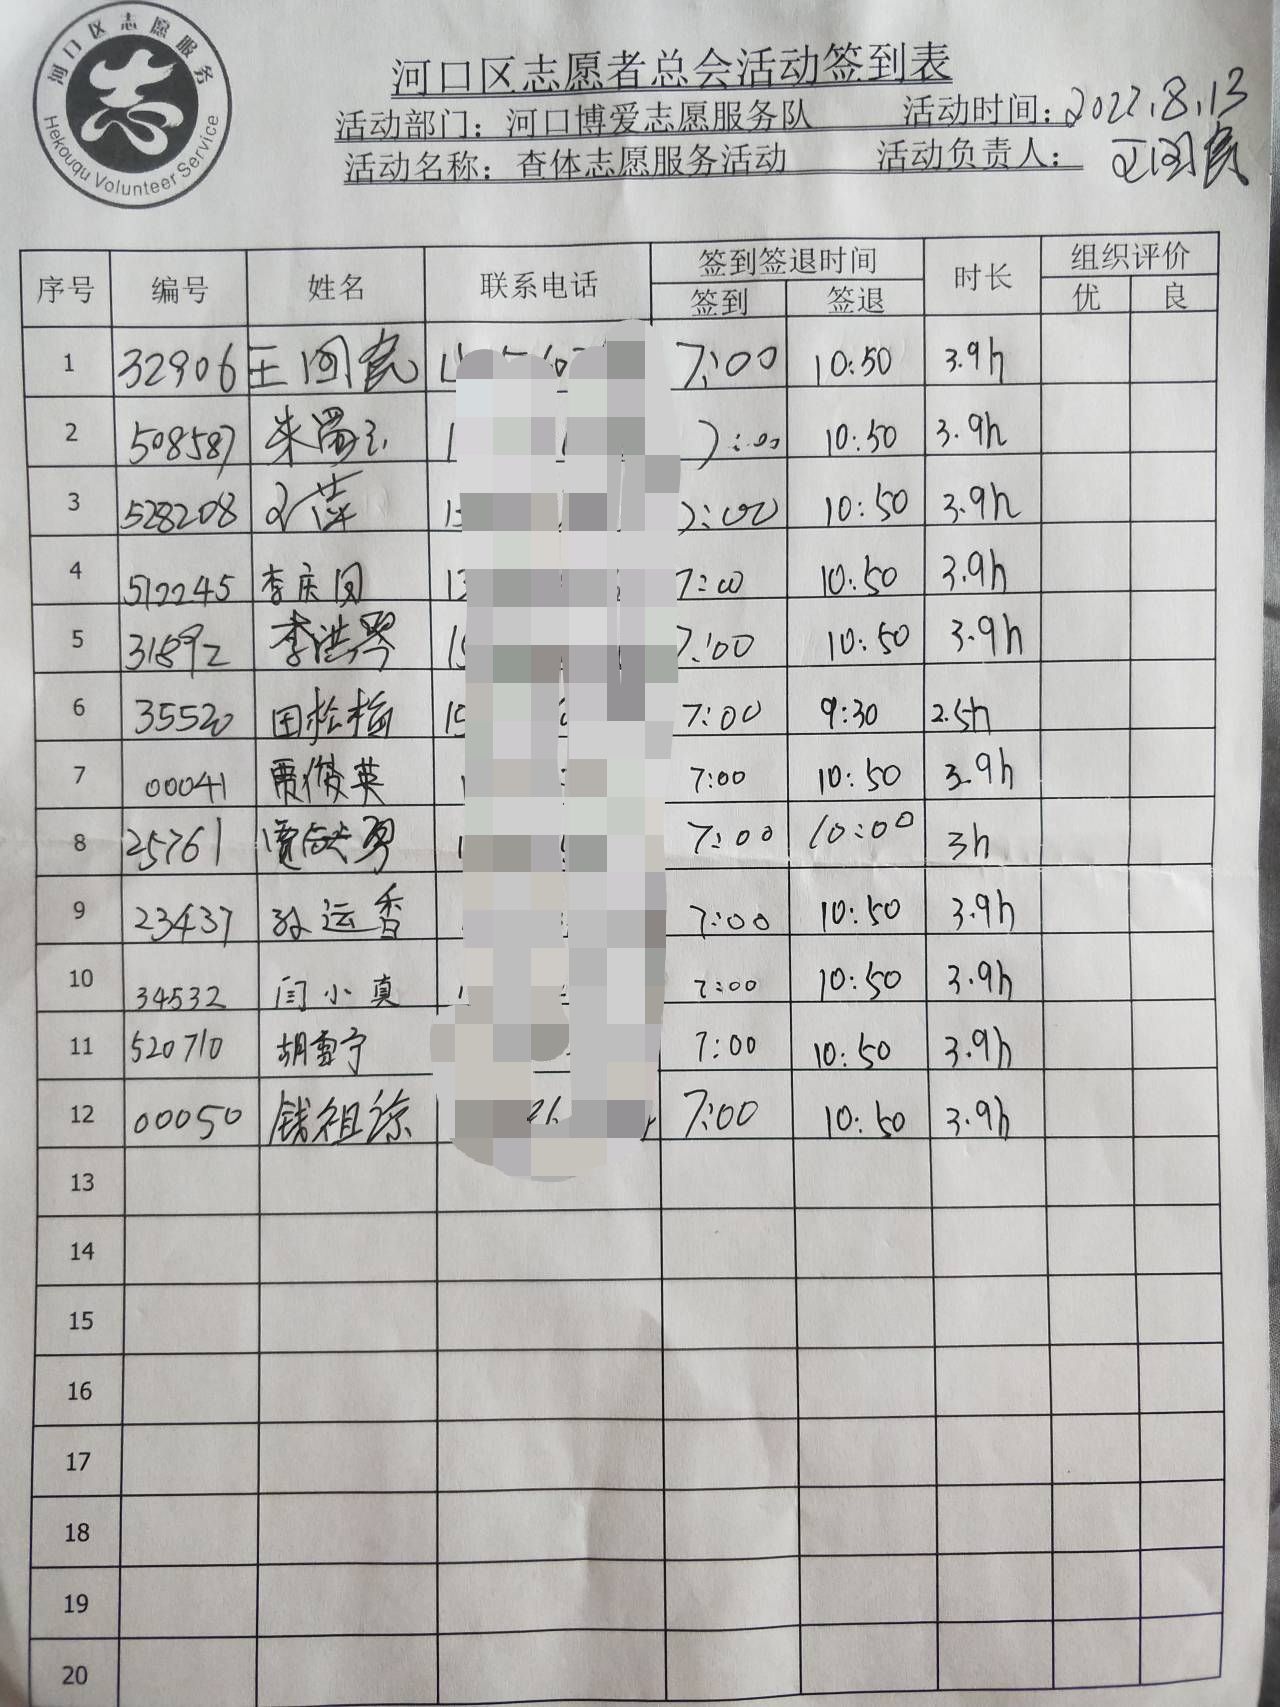 河口区志愿服务
Hekouqu Volunteer Service
河口区志愿者总会活动签到表
活动部门：河口博爱志愿服务队 活动时间：2022.8.13
活动名称：查体志愿服务活动 活动负责人：
序号 编号 姓名 联系电话 签到签退时间 时长 组织评价
签到 签退 优 良
1 32906 王 7:00 10:50 3.9h
2 508587 朱 7:00 10:50 3.9h
3 528208 7:00 10:50 3.9h
4 512245 李庆 7:00 10:50 3.9h
5 31892 李洪琴 7:00 10:50 3.9h
6 35520 田松梅 7:00 9:30 2.5h
7 00041 贾俊英 7:00 10:50 3.9h
8 25761 7:00 10:00 3h
9 23437 孙运香 7:00 10:50 3.9h
10 34532 闫小真 7:00 10:50 3.9h
11 520710 胡雪宁 7:00 10:50 3.9h
12 00050 钱祖谅 7:00 10:50 3.9h
13
14
15
16
17
18
19
20